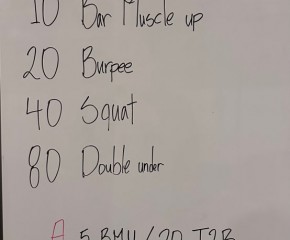 10 Bar Muscle up
20 Burpee
40 Squat
80 Double under
A 5 BMU / 20 T2B